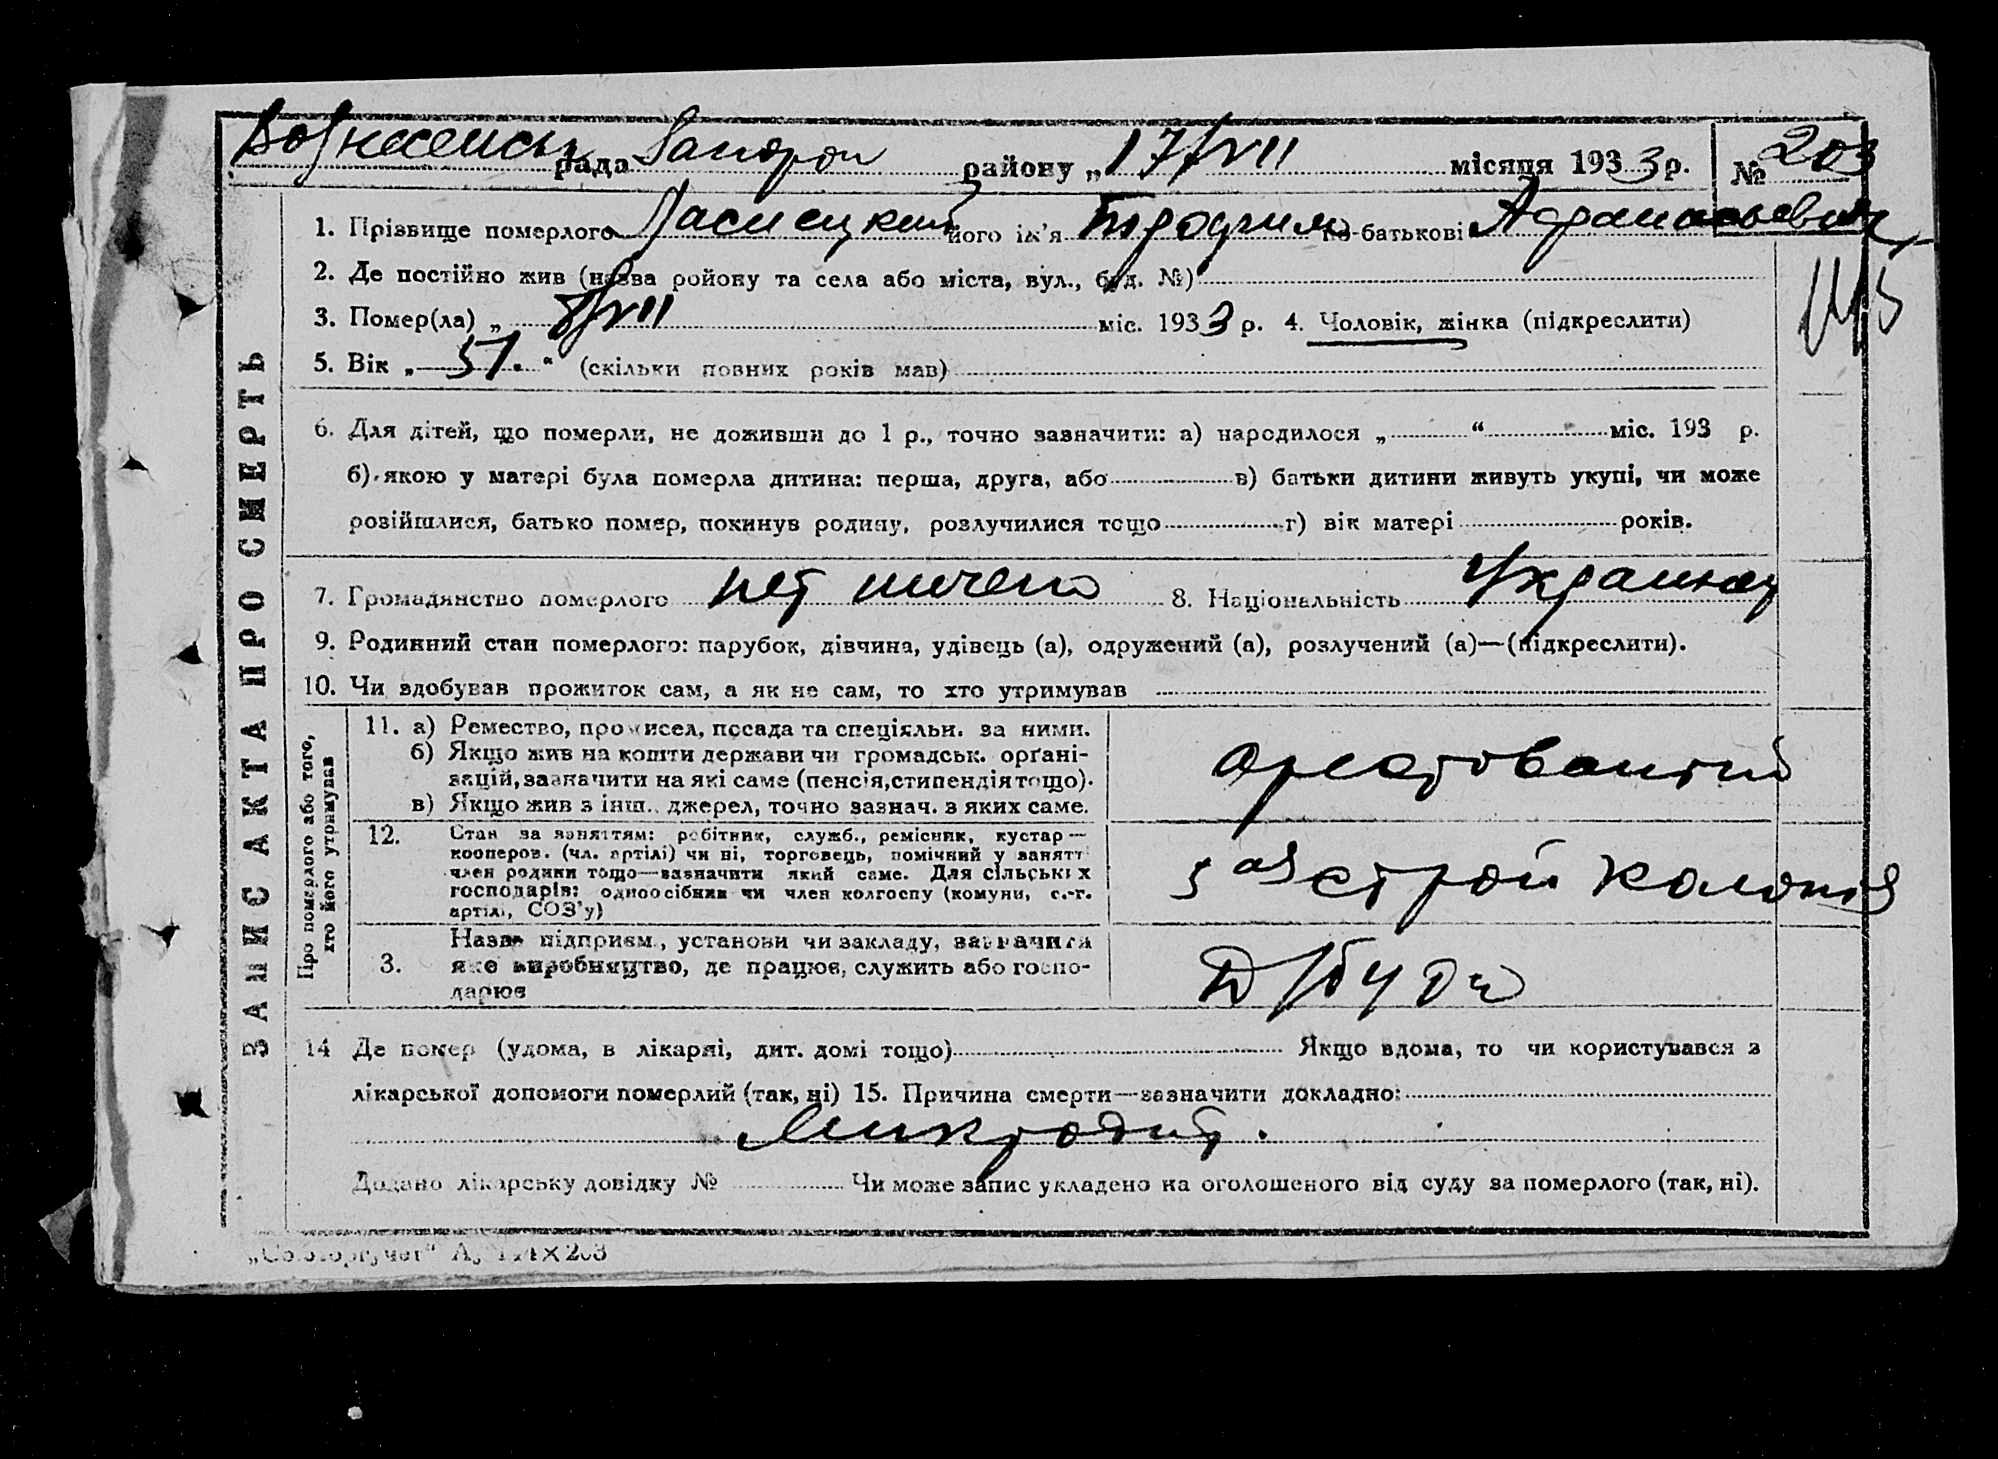 Вознесенськ рада Запорож району „ 17/VII місяця 1933 р. № 203
1. Прізвище померлого Ласнецкий його ім'я Трофим по батькові Афанасьевич
2. Де постійно жив (назва ройону та села або міста, вул., буд. №)
3. Помер(ла) „ 8/VII міс. 1933 р. 4. Чоловік, жінка (підкреслити)
5. Вік „ 51. “ (скільки повних років мав)
6. Для дітей, що померли, не доживши до 1 р., точно зазначити: а) народилося „ “ міс. 193 р.
б) якою у матері була померла дитина: перша, друга, або в) батьки дитини живуть укупі, чи може
розійшлися, батько помер, покинув родину, розлучилися тощо г) вік матері років.
7. Громадянство померлого нет ничего 8. Національність Украинец
9. Родинний стан померлого: парубок, дівчина, удівець (а), одружений (а), розлучений (а)—(підкреслити).
10. Чи здобував прожиток сам, а як не сам, то хто утримував
ЗАПИС АКТА ПРО СМЕРТЬ
Про померлого або того,
хто його утримував
11. а) Ремество, промисел, посада та спеціяльн. за ними.
б) Якщо жив на кошти держави чи громадськ. орґані-
зацій, зазначити на які саме (пенсія, стипендія тощо).
в) Якщо жив з інш. джерел, точно зазнач. з яких саме.
арестованный
12. Стан за заняттям: робітник, служб., ремісник, кустар —
кооперов. (чл. артілі) чи ні, торговець, помічний у занятті
член родини тощо—зазначити який саме. Для сільських
господарів: одноосібник чи член колгоспу (комуни, с.-г.
артілі, СОЗ'у)
5ая строй колония
3. Назва підприєм., установи чи закладу, зазначити
яке виробництво, де працює, служить або госпо-
дарює
14 Де помер (удома, в лікарні, дит. домі тощо) Якщо вдома, то чи користувався з
лікарської допомоги померлий (так, ні) 15. Причина смерти—зазначити докладно:
Додано лікарську довідку № Чи може запис укладено на оголошеного від суду за померлого (так, ні).